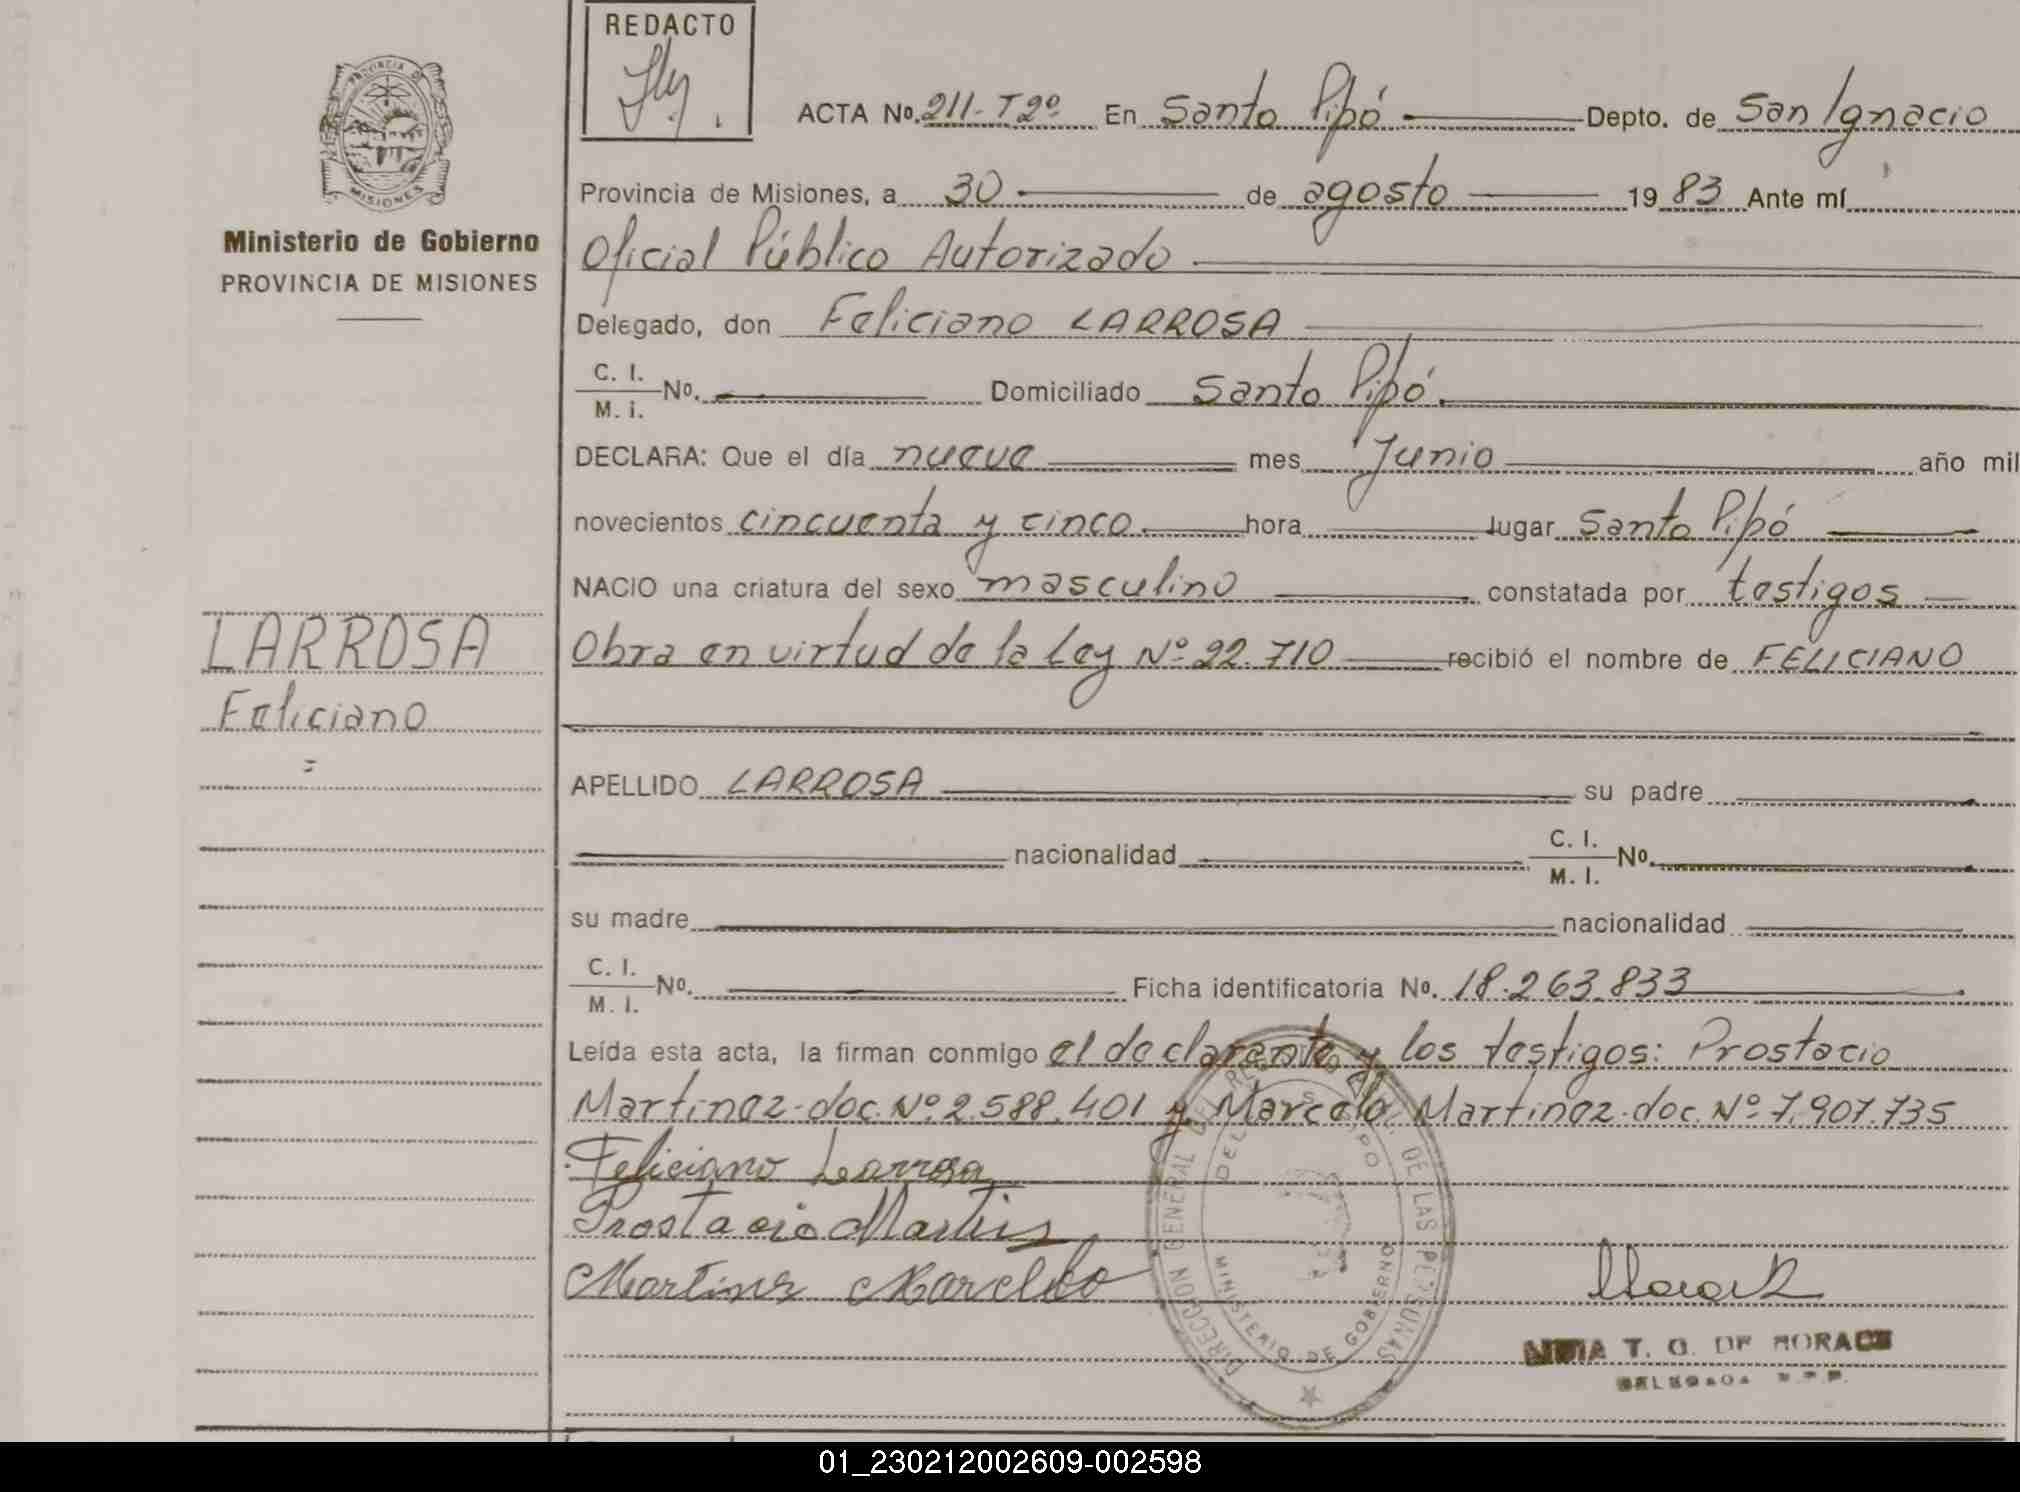 REDACTO
PROVINCIA DE
MISIONES
Ministerio de Gobierno
PROVINCIA DE MISIONES
ACTA No. 211-T2º En Santo Pipó Depto. de San Ignacio
Provincia de Misiones, a 30 de agosto 1983 Ante mí
Oficial Público Autorizado
Delegado, don Feliciano LARROSA
C. I.
M. i. No. Domiciliado Santo Pipó.
DECLARA: Que el día nueve mes Junio año mil
novecientos cincuenta y cinco. hora lugar Santo Pipó
NACIO una criatura del sexo masculino constatada por testigos
Obra en virtud de la Ley Nº 22.710 recibió el nombre de FELICIANO
LARROSA
Feliciano
=
APELLIDO LARROSA su padre
nacionalidad C. I.
M. I. No.
su madre nacionalidad
C. I.
M. I. No. Ficha identificatoria No. 18.263.833
Leída esta acta, la firman conmigo el declarante y los testigos: Prostacio
Martinez-doc. Nº 2.588.401 y Marcelo Martinez-doc. Nº 7.907.735
Feliciano Larrosa
Prostacio Martis
Martines Marcelo
DIRECCION GENERAL DEL REGISTRO DE LAS PERSONAS
MINISTERIO DE GOBIERNO
T. G. DE MORAES
DELEGADA
01_230212002609-002598